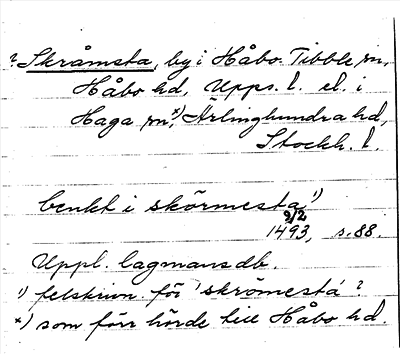 ? Skråmsta, by i Håbo-Tibble sn,
Håbo hd, Upps. l. el. i
Haga sn,ˣ⁾ Ärlinghundra hd,
Stockh. l.
benkt i skörmesta¹⁾
9/2
1493, s. 88.
Uppl. lagmansdb.
¹⁾ felskrivn. för 'skrömesta'?
ˣ⁾ som förr hörde till Håbo hd.